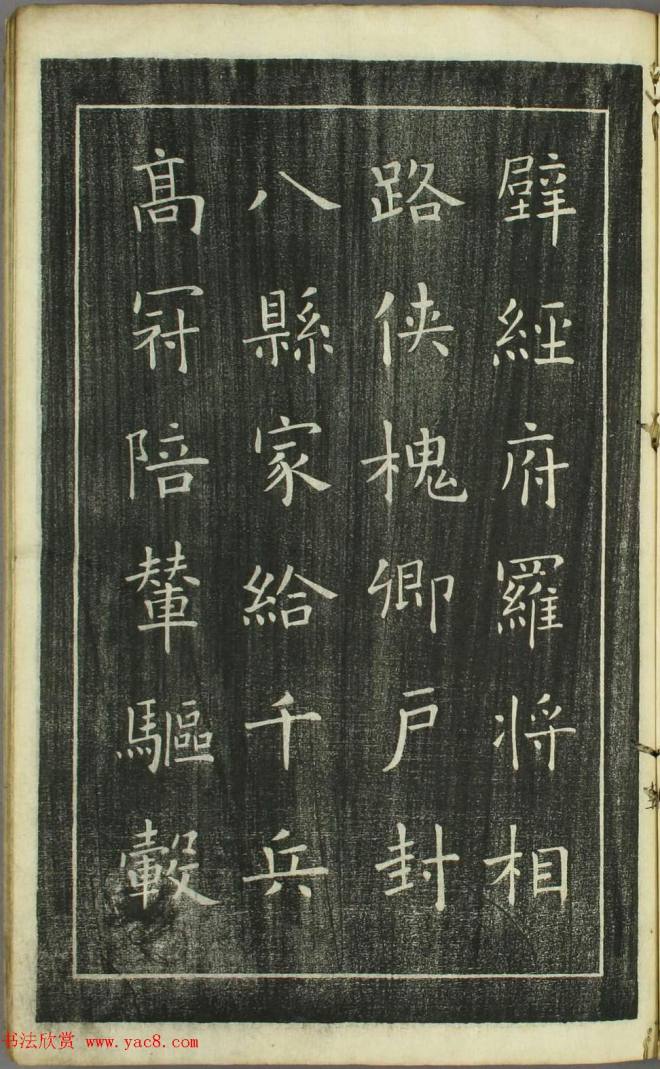 壁經府羅將相
路俠槐卿戸封
八縣家給千兵
髙冠陪輦驅轂
书法欣赏 www.yac8.com